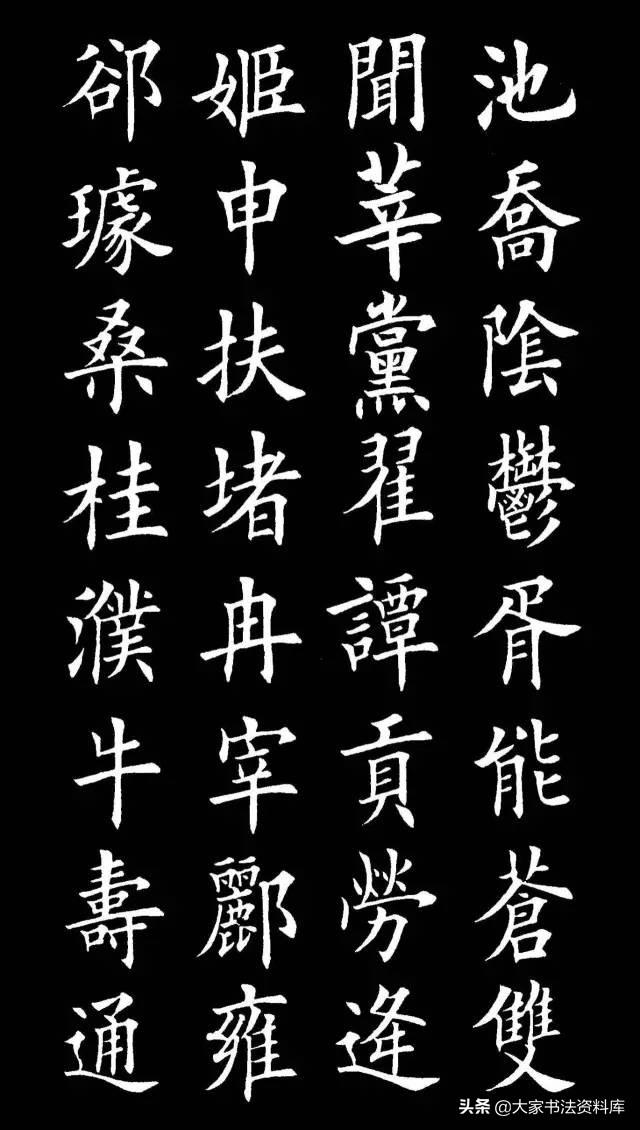 池喬陰鬱胥能蒼雙
聞莘黨翟譚貢勞逄
姬申扶堵冉宰酈雍
郤璩桑桂濮牛壽通
头条 @大家书法资料库